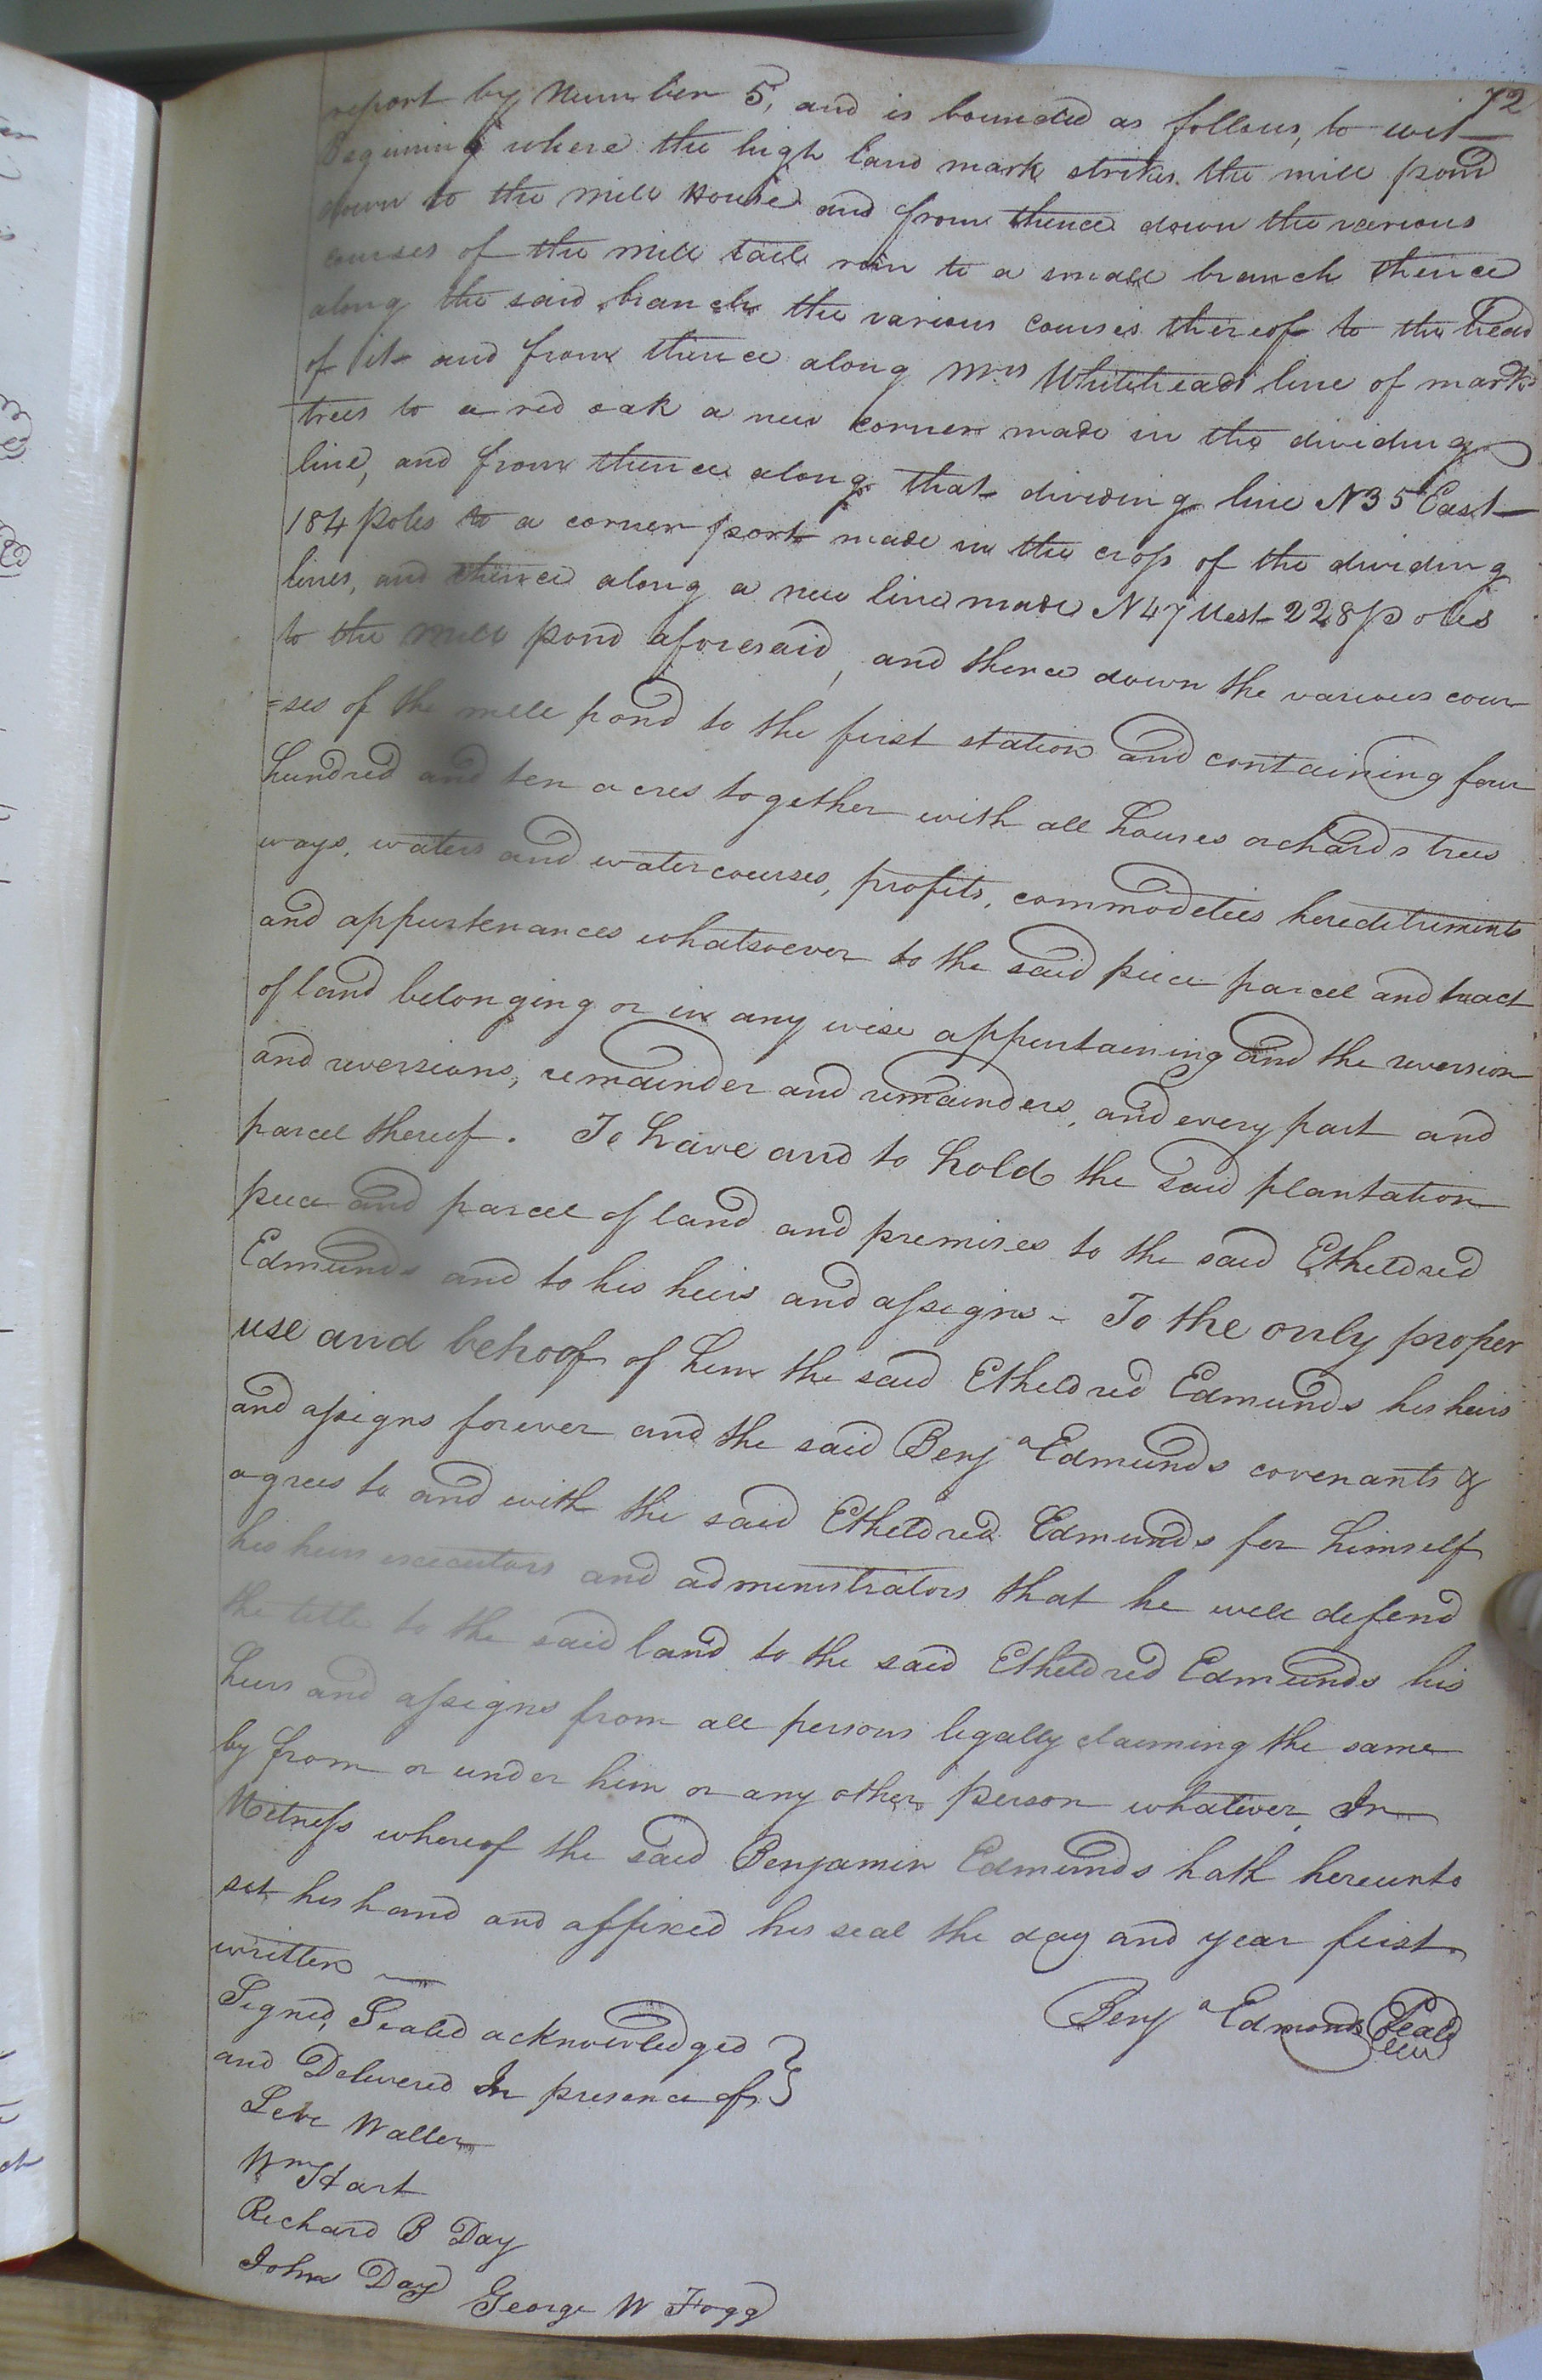 72
report by Number 5, and is bounded as follows, to wit
Beginning where the high land mark strikes the mill pond
down to the mill House and from thence down the various
courses of the mill tail run to a small branch thence
along the said branch the various courses thereof to the head
of it and from thence along Mrs Whiteheads line of mark'd
trees to a red oak a new corner made in the dividing
line, and from thence along that dividing line N35 East
184 poles to a corner post made in the crops of the dividing
lines, and thence along a new line made N47 West 228 poles
to the mill pond aforesaid, and thence down the various cour
=ses of the mill pond to the first station and containing four
hundred and ten acres together with all houses orchards trees
ways, waters and watercourses, profits, commodeties hereditiments
and appurtenances whatsoever to the said piece parcel and tract
of land belonging or in any wise appertaining and the reversion
and reversions, remainder and remainders, and every part and
parcel thereof. To have and to hold the said plantation
piece and parcel of land and premises to the said Etheldred
Edmunds and to his heirs and assigns - To the only proper
use and behoof of him the said Etheldred Edmunds his heirs
and assigns forever and the said Benja Edmunds covenants &
agrees to and with the said Etheldred Edmunds for himself
his heirs executors and administrators that he will defend
the title to the said land to the said Etheldred Edmunds his
heirs and assigns from all persons legally claiming the same
by from or under him or any other person whatever, In
Witness whereof the said Benjamin Edmunds hath hereunto
set his hand and affixed his seal the day and year first
written
Signed, Sealed acknowledged
and Delivered In presence of
Benja Edmonds Seald
Levi Waller
Wm Hart
Richard B Day
John Day
George W Fogg